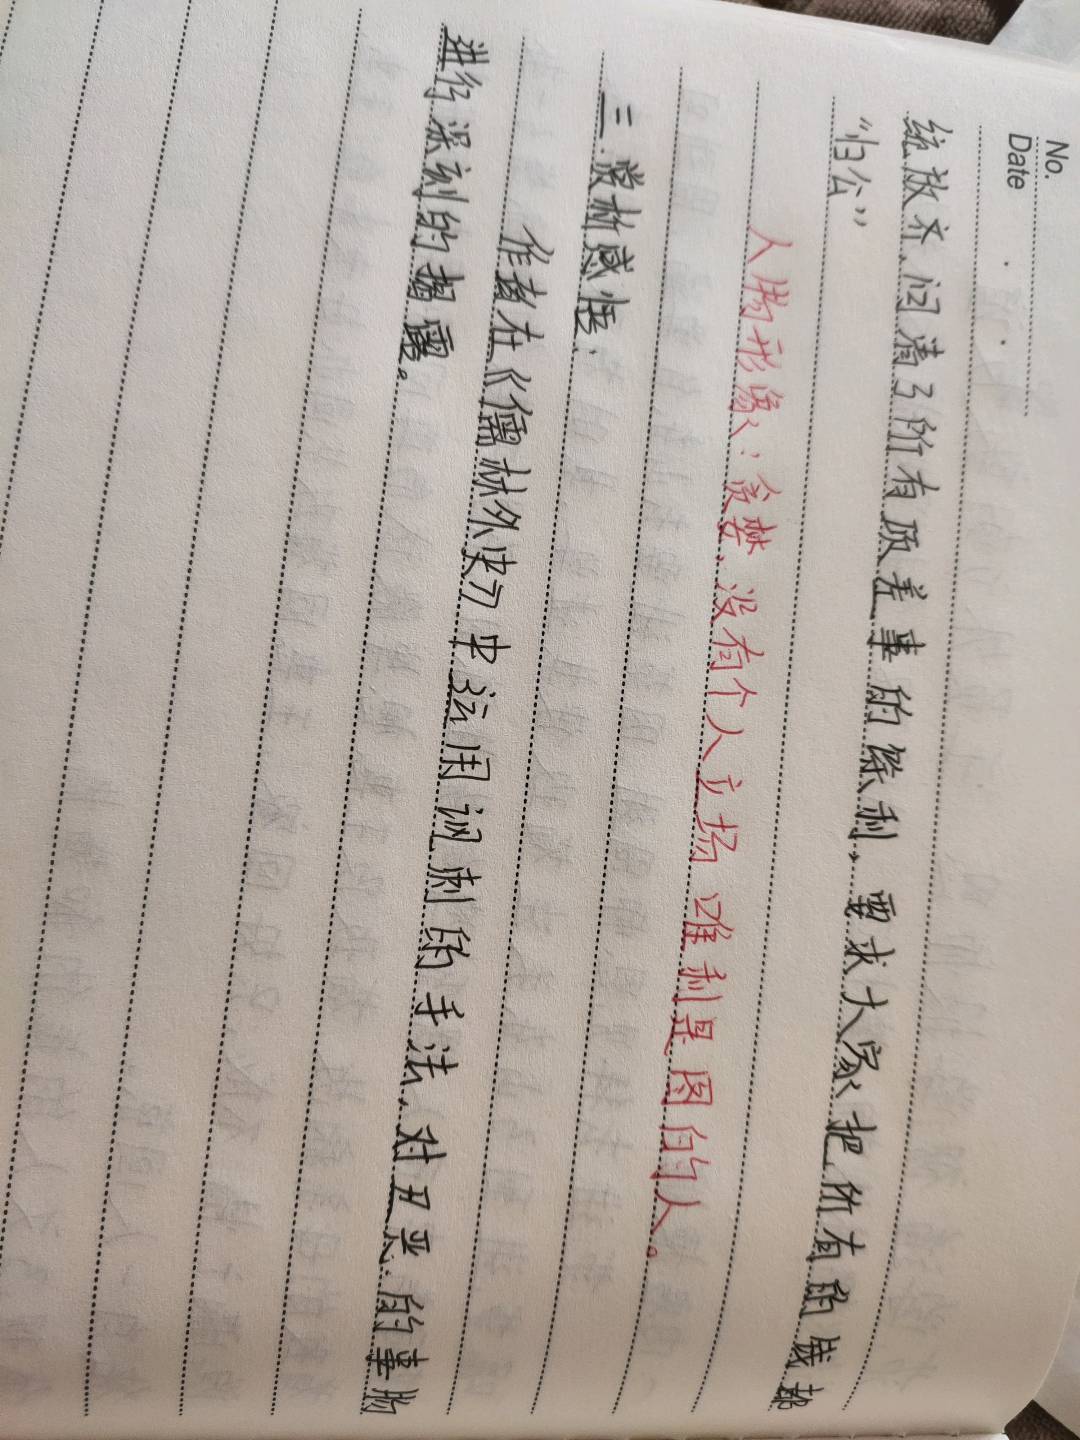 No.
Date
统放齐,问清了所有项差事的余利,要求大家把所有的钱都
“归公”
人物形象:贪婪,没有个人立场 唯利是图的人。
三.赏析感悟:
作者在《儒林外史》中运用讽刺的手法,对丑恶的事物
进行深刻的揭露。